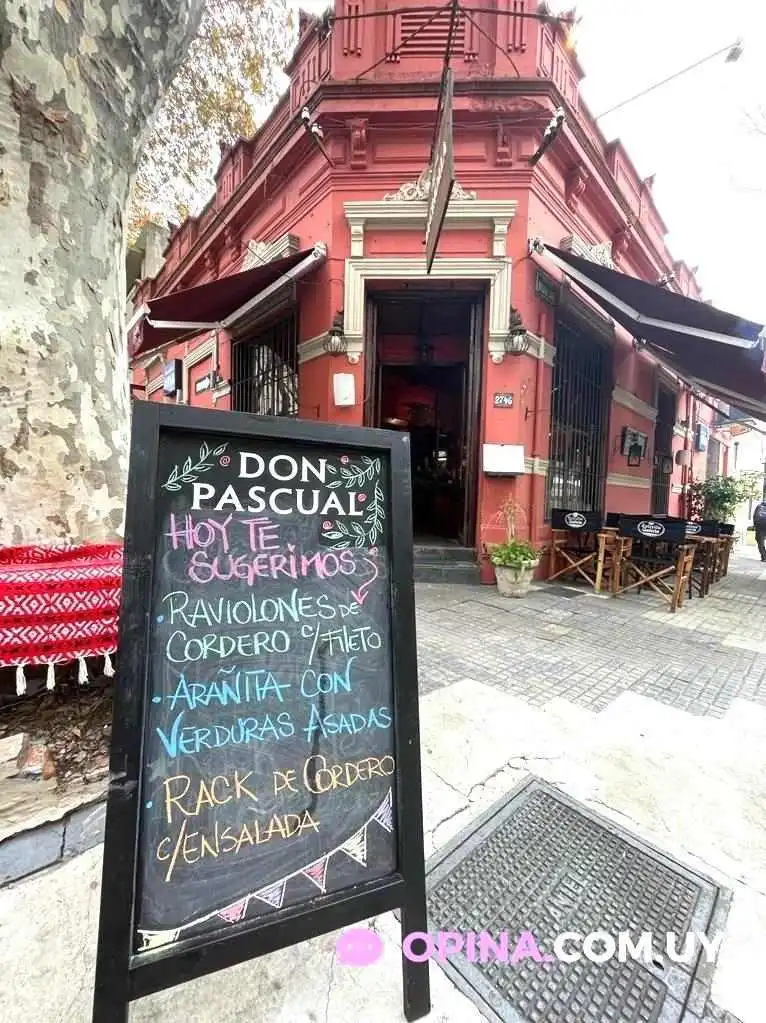 2746
DON
PASCUAL
HOY TE
SUGERIMOS
• RAVIOLONES DE
CORDERO C/FILETO
• ARAÑITA CON
VERDURAS ASADAS
• RACK DE CORDERO
C/ENSALADA
OPINA.COM.UY